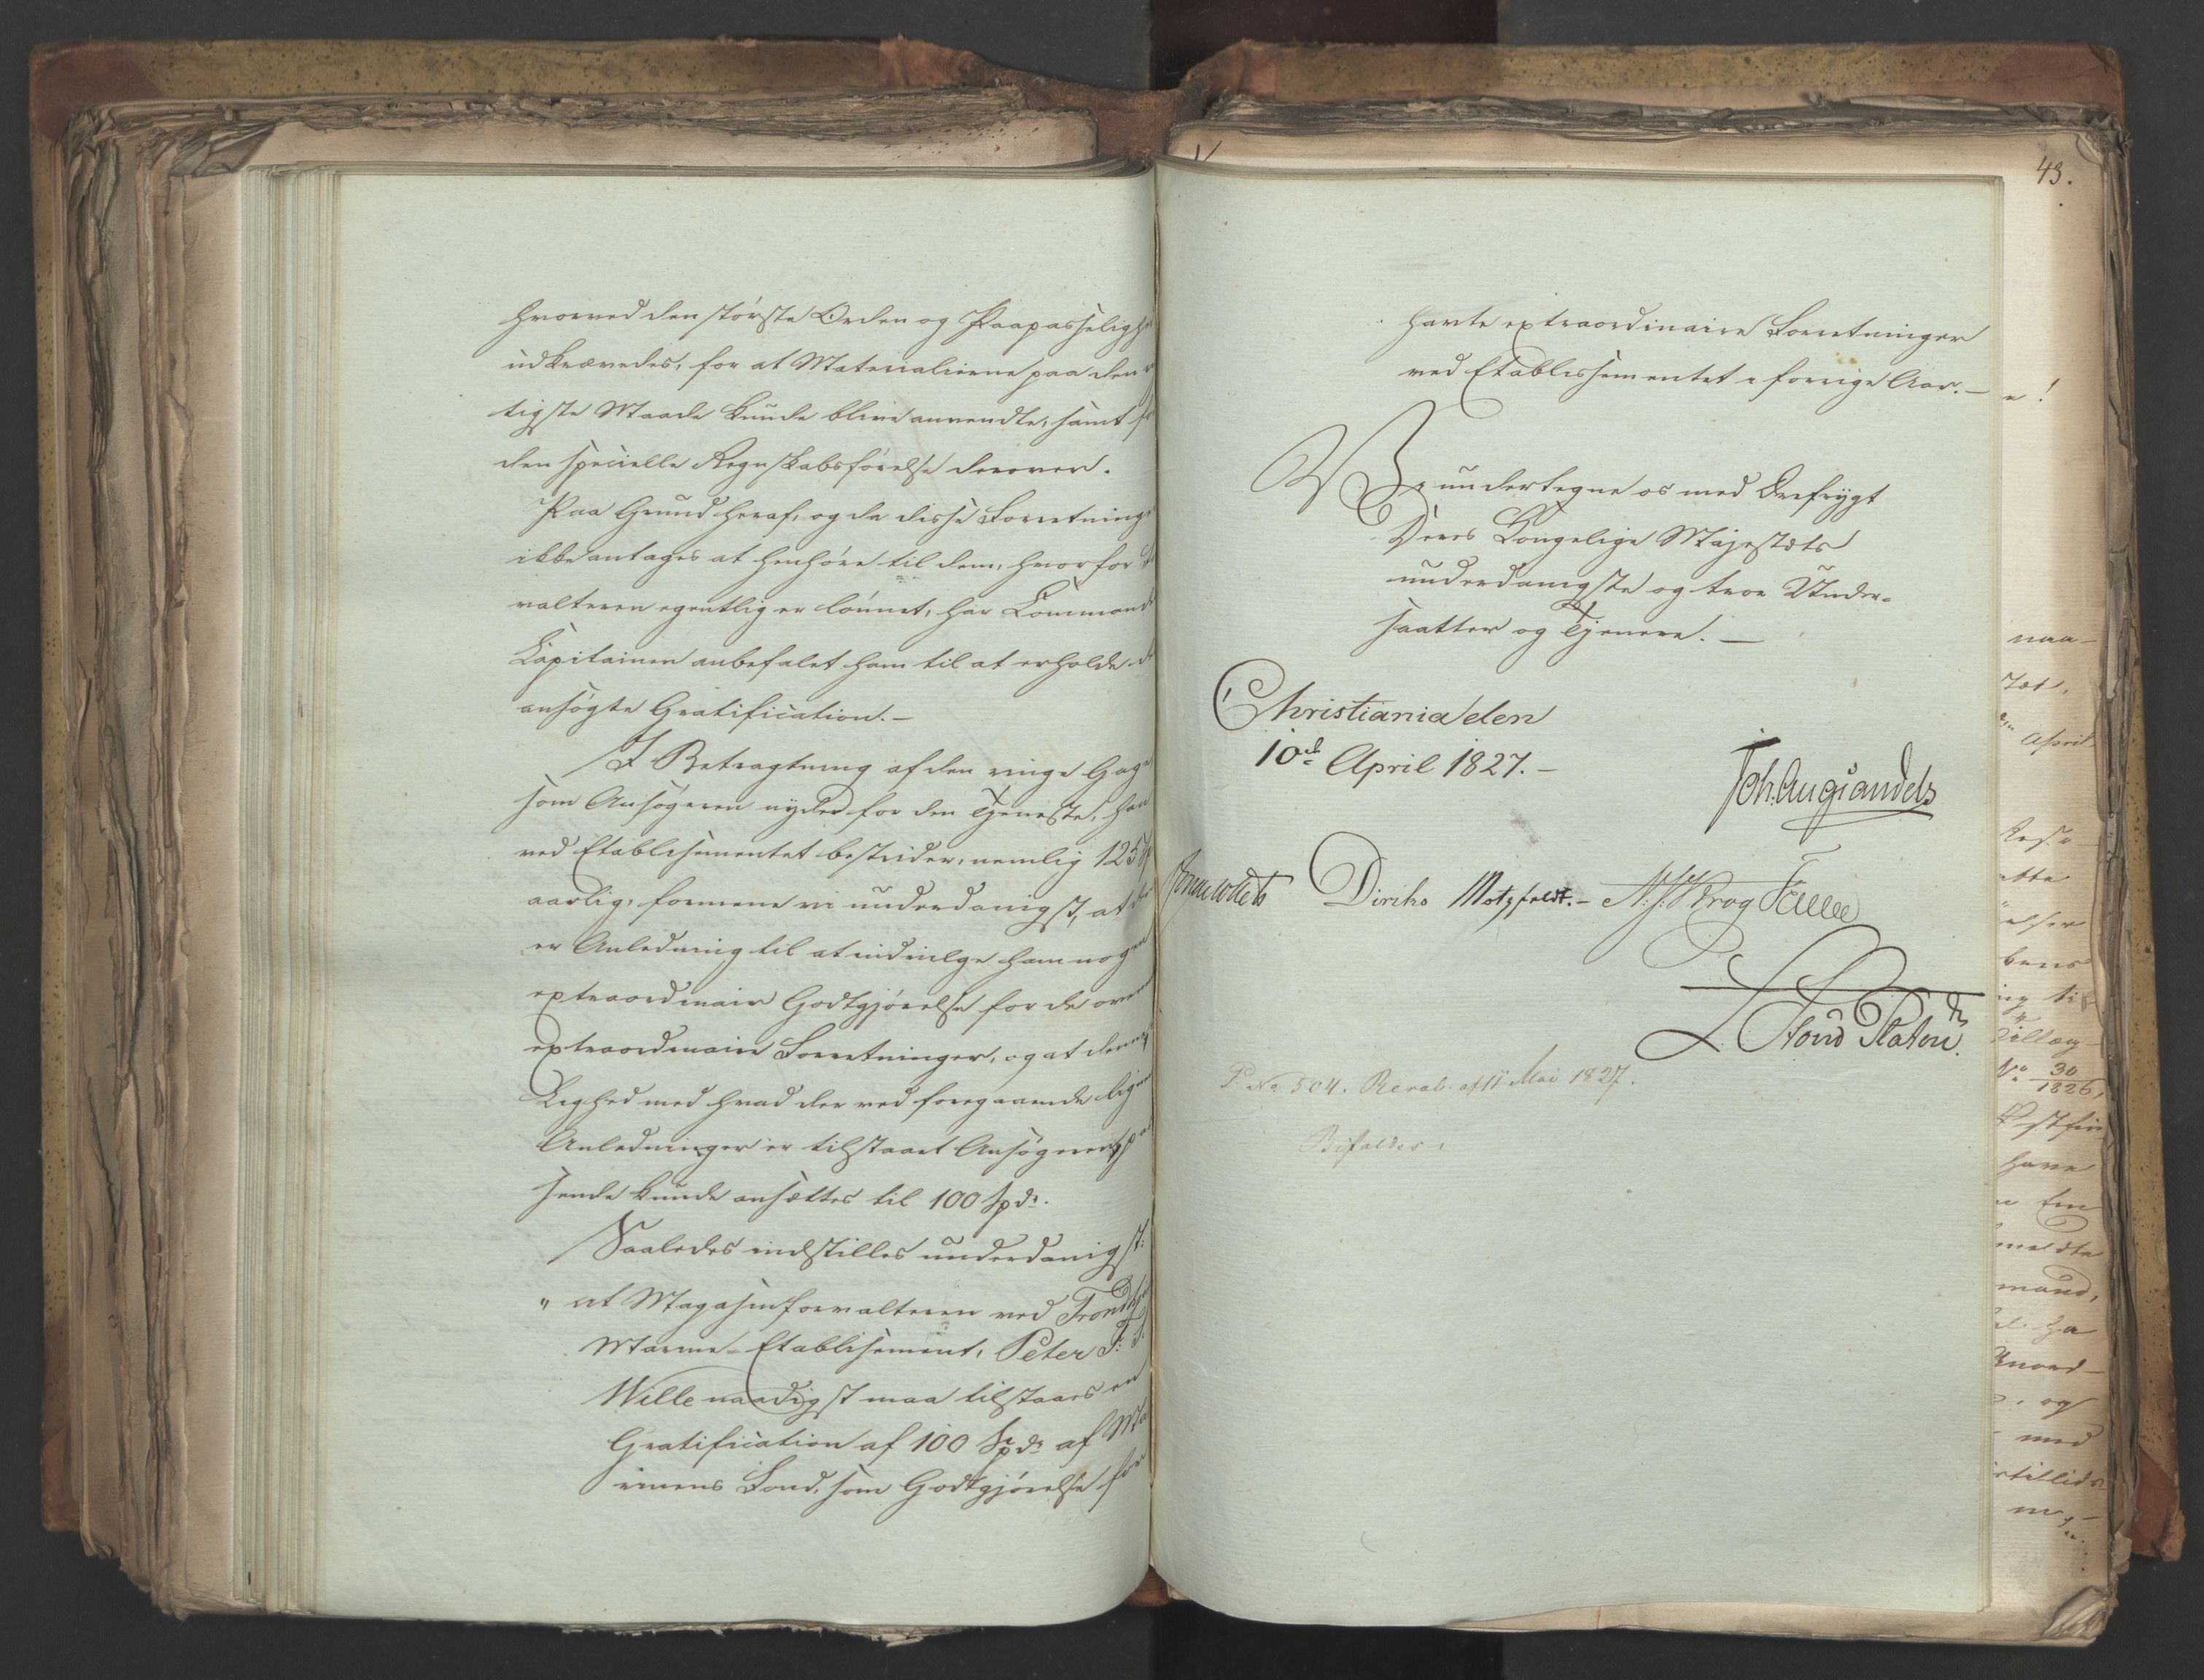 hvorved den største Orden og Paapasseligh
udkrævedes, for at Materialierne paa den
tigste Maade kunde blive anvendte, samt f
den specielle Regnskabsførelse derover.
Paa Grund heraf, og da disse Forretning
ikke antages at henhøre til dem, hvorfor
valteren egentlig er lønnet, har Command
Capitainen anbefalet ham til at erholde d
ansøgte Gratification.-
I Betragtning af den ringe Gage
som Ansøgeren nyder for den Tjeneste, han
ved Etablissementet bestrider, nemlig 125
aarlig, formene vi underdanigst, at der
er Anledning til at indvilge ham nogen
extraordinair Godtgjørelse for de oven
extraordinaire Forretninger, og at denne
Lighed med hvad der ved foregaaende lign
Anledninger er tilstaaet Ansøgeren, pas
sende kunde ansættes til 100 Spd.
Saaledes indstilles underdanigst:
" at Magasinforvalteren ved Trondhj
Marine-Etablissement, Peter F: S.
Wille naadigst maa tilstaaes en
Gratification af 100 Spd. af Ma
rinens Fond, som Godtgjørelse for
43.
havte extraordinaire Forretninger
ved Etablissementet i forrige Aar.-
Vi undertegne os med Ærefrygt
Deres Kongelige Majestæts
underdanigste og troe Under-
saatter og Tjenere. -
Christiania den
10de April 1827.-
Joh. Aug. Sandels
Sommerfeldts Diriks Motzfeldt.- N. J. Krog Fasting
v. Platen
P. No 504. Resol. af 11 Mai 1827.
Bifaldes.
e!
naa-
April
bens
ing til
Tillæg
No 30/1826,
have
meldte
mand,
og
med